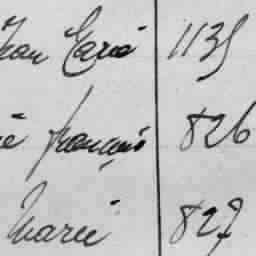 Jean Marie 1135
françois 826
Marie 827